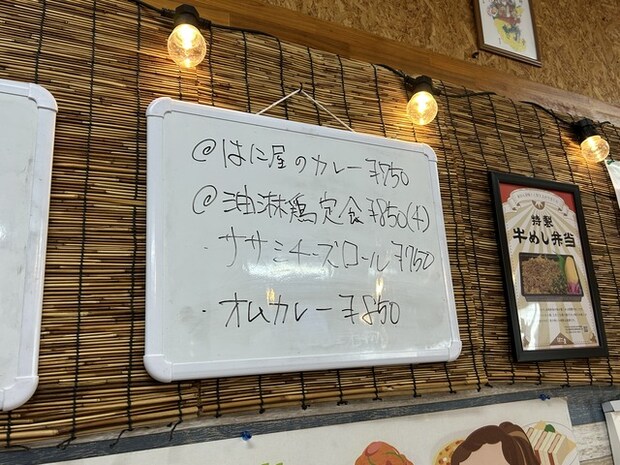 @はに屋のカレー ¥750
@油淋鶏定食 ¥850(大)
・ササミチーズロール ¥750
・オムカレー ¥850
特製
牛めし弁当